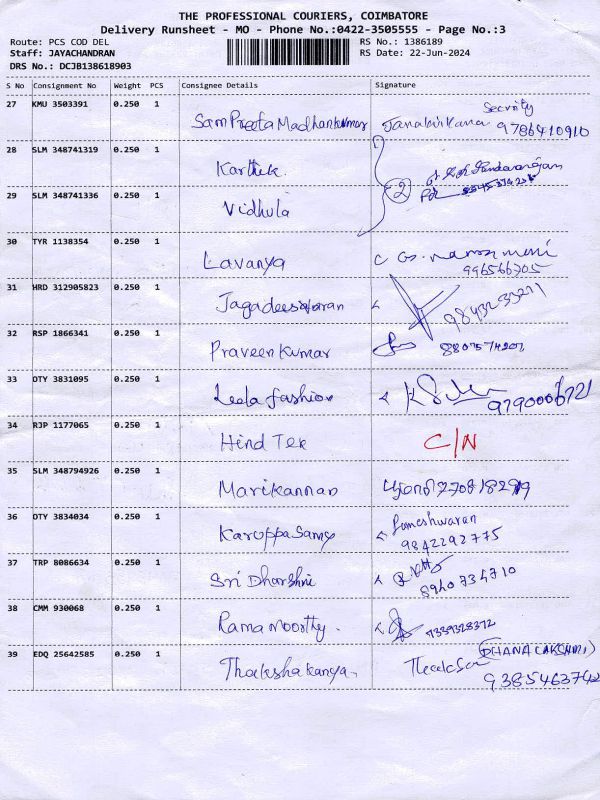 THE PROFESSIONAL COURIERS, COIMBATORE
Delivery Runsheet - MO - Phone No.:0422-3505555 - Page No.:3
Route: PCS COD DEL RS No.: 1386189
Staff: JAYACHANDRAN RS Date: 22-Jun-2024
DRS No.: DCJB138618903
S No Consignment No Weight PCS Consignee Details Signature
27 KMU 3503391 0.250 1 Security
SamPreeta Madhankumar 9786410910
28 SLM 348741319 0.250 1
Karthik. 2
29 SLM 348741336 0.250 1
Vidhula
30 TYR 1138354 0.250 1
Lavanya
996566705
31 HRD 312905823 0.250 1
Jagadeeswaran
32 RSP 1866341 0.250 1
Praveen Kumar
33 DTY 3831095 0.250 1
Leela fashion 9790006721
34 RJP 1177065 0.250 1
Hind Tek C/N
35 SLM 348794926 0.250 1
Marikannan
36 DTY 3834034 0.250 1
Karuppasamy 9842292775
37 TRP 8086634 0.250 1
Sri Dharshni 8940734710
38 CMM 930068 0.250 1
Rama moorthy. 9339328372
39 EDQ 25642585 0.250 1 DHANALAKSHMI)
Thakshakanya. 9385463742